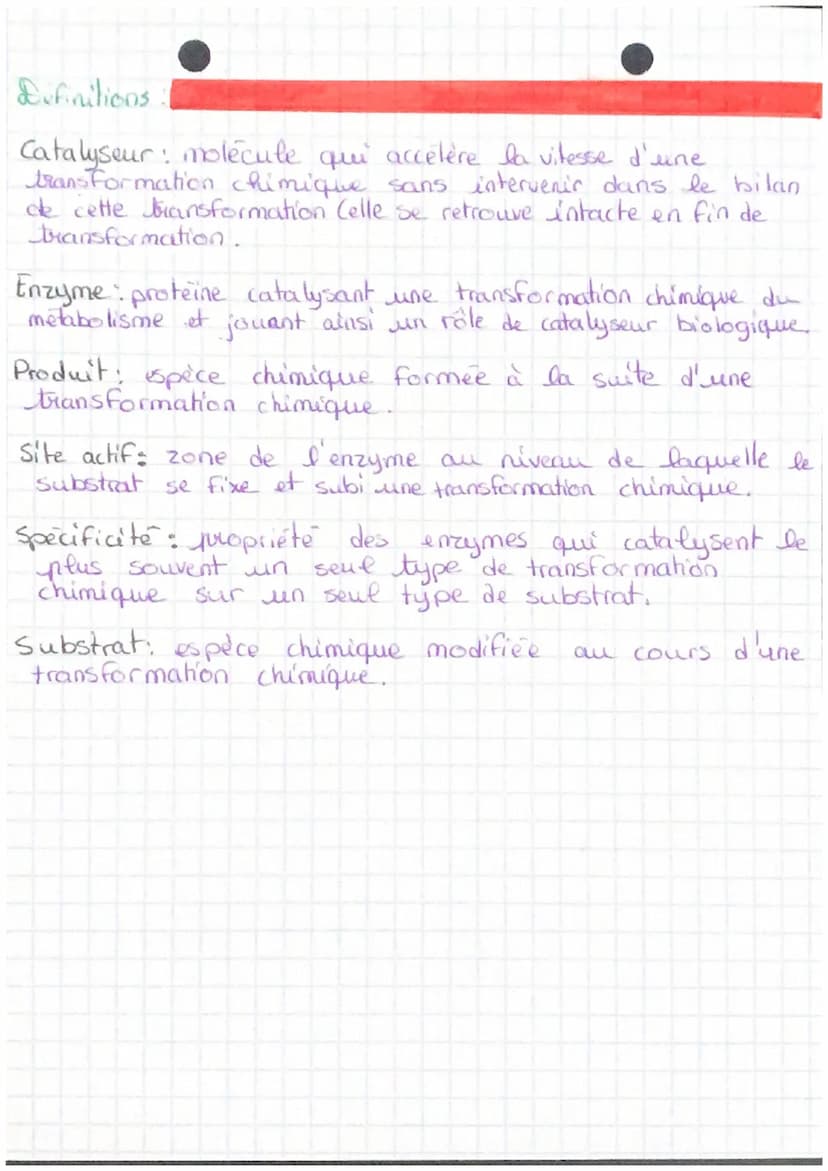 Définitions :
Catalyseur : molécule qui accélère la vitesse d'une
transformation chimique sans intervenir dans le bilan
de cette transformation (elle se retrouve intacte en fin de
transformation.
Enzyme : protéine catalysant une transformation chimique du
métabolisme et jouant ainsi un rôle de catalyseur biologique.
Produit : espèce chimique formée à la suite d'une
transformation chimique.
Site actif : zone de l'enzyme au niveau de laquelle le
substrat se fixe et subi une transformation chimique.
Spécificité : propriété des enzymes qui catalysent le
plus souvent un seul type de transformation
chimique sur un seul type de substrat.
Substrat : espèce chimique modifiée au cours d'une
transformation chimique.